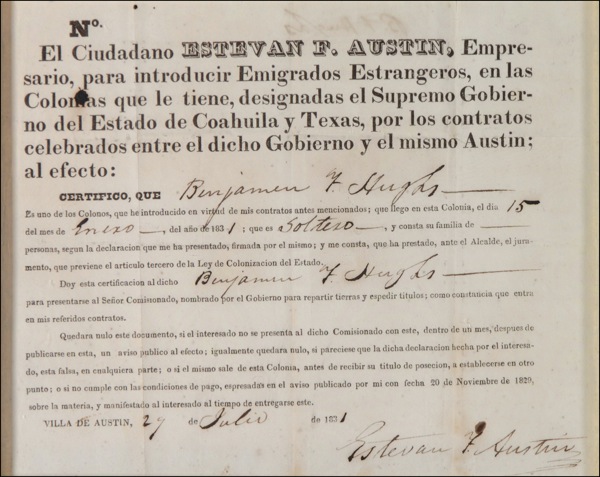 Nº.
El Ciudadano ESTEVAN F. AUSTIN, Empre-
sario, para introducir Emigrados Estrangeros, en las
Colonias que le tiene, designadas el Supremo Gobier-
no del Estado de Coahuila y Texas, por los contratos
celebrados entre el dicho Gobierno y el mismo Austin;
al efecto:
CERTIFICO, QUE Benjamen F. Hughs
Es uno de los Colonos, que he introducido en virtud de mis contratos antes mencionados; que llego en esta Colonia, el dia 15
del mes de Enero, del año de 1831; que es Soltero, y consta su familia de
personas, segun la declaracion que me ha presentado, firmada por el mismo; y me consta, que ha prestado, ante el Alcalde, el jura-
mento, que previene el articulo tercero de la Ley de Colonizacion del Estado.
Doy esta certificacion al dicho Benjamen F. Hughs
para presentarse al Señor Comisionado, nombrado por el Gobierno para repartir tierras y espedir titulos; como constancia que entra
en mis referidos contratos.
Quedara nulo este documento, si el interesado no se presenta al dicho Comisionado con este, dentro de un mes, despues de
publicarse en esta, un aviso publico al efecto; igualmente quedará nulo, si pareciese que la dicha declaracion hecha por el interesa-
do, esta falsa, en cualquiera parte; o si el mismo sale de esta Colonia, antes de recibir su titulo de posecion, a establecerse en otro
punto; o si no cumple con las condiciones de pago, espresadas en el aviso publicado por mi con fecha 20 de Noviembre de 1829,
sobre la materia, y manifestado al interesado al tiempo de entregarse este.
VILLA DE AUSTIN, 29 de Julio de 1831
Estevan F. Austin